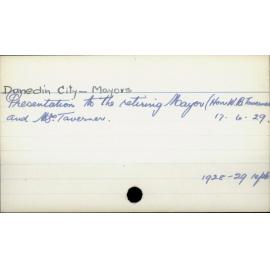 Dunedin City - Mayors
Presentation to the retiring Mayor (Hon W.B. Taverner
and Mrs. Taverner. 17. 6. 29.
1928-29